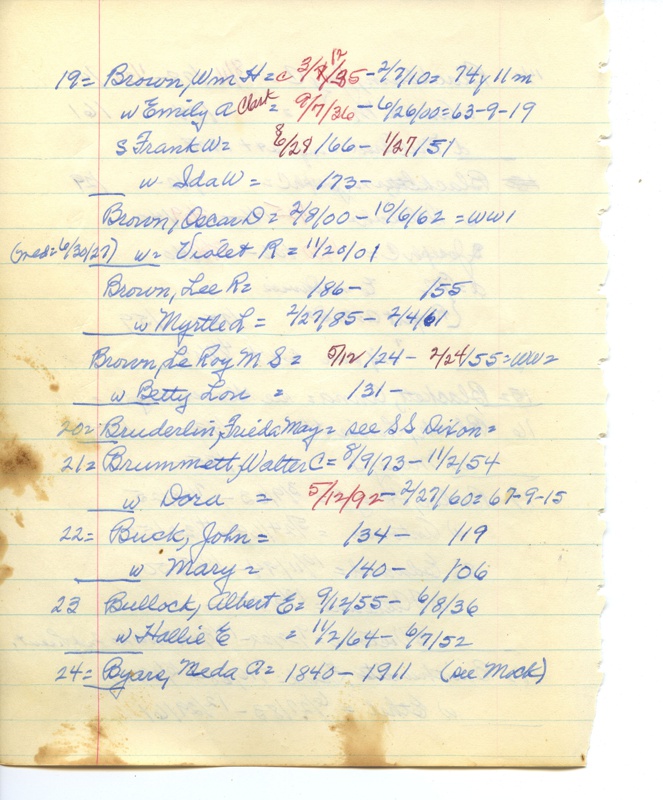 19= Brown, Wm H = c 3/12/35 - 2/2/10 = 74y 11m
w Emily A Clark = 9/7/36 - 6/26/00 = 63-9-19
S Frank W = 8/28/66 - 1/27/51
w Ida W = /73-
Brown, Oscar D = 2/8/00 - 10/6/62 = WW1
6/30/27) w = Violet R = 11/20/01
Brown, Lee R = /86- /55
w Myrtle L = 2/27/85 - 2/4/61
Brown, Le Roy M S = 5/12/24 - 2/24/55 = WW2
w Betty Lou = /31-
20= Bruderlin, Frieda May = see SS Dixon =
21= Brummett, Walter C = 8/9/73 - 11/2/54
w Dora = 5/12/92 - 2/27/60 = 67-9-15
22= Buck, John = /34- /19
w Mary = /40- /06
23 Bullock, Albert E = 9/12/55 - 6/8/36
w Hallie E = 11/2/64 - 6/7/52
24= Byars, Neda A = 1840 - 1911 (see Mock)